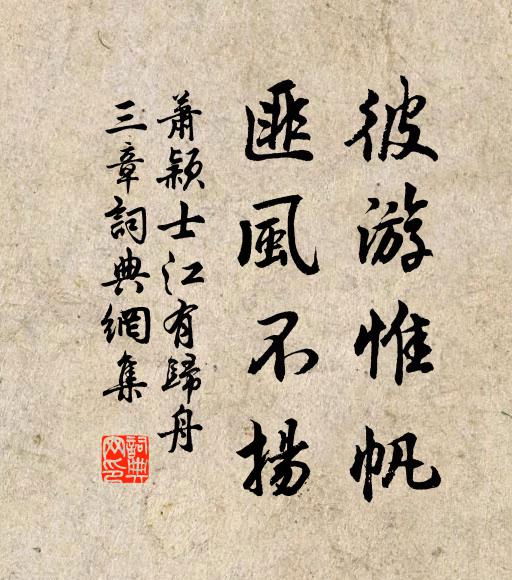 彼游惟帆
匪風不揚
蕭穎士江有歸舟
三章詞典網集
詞典網印